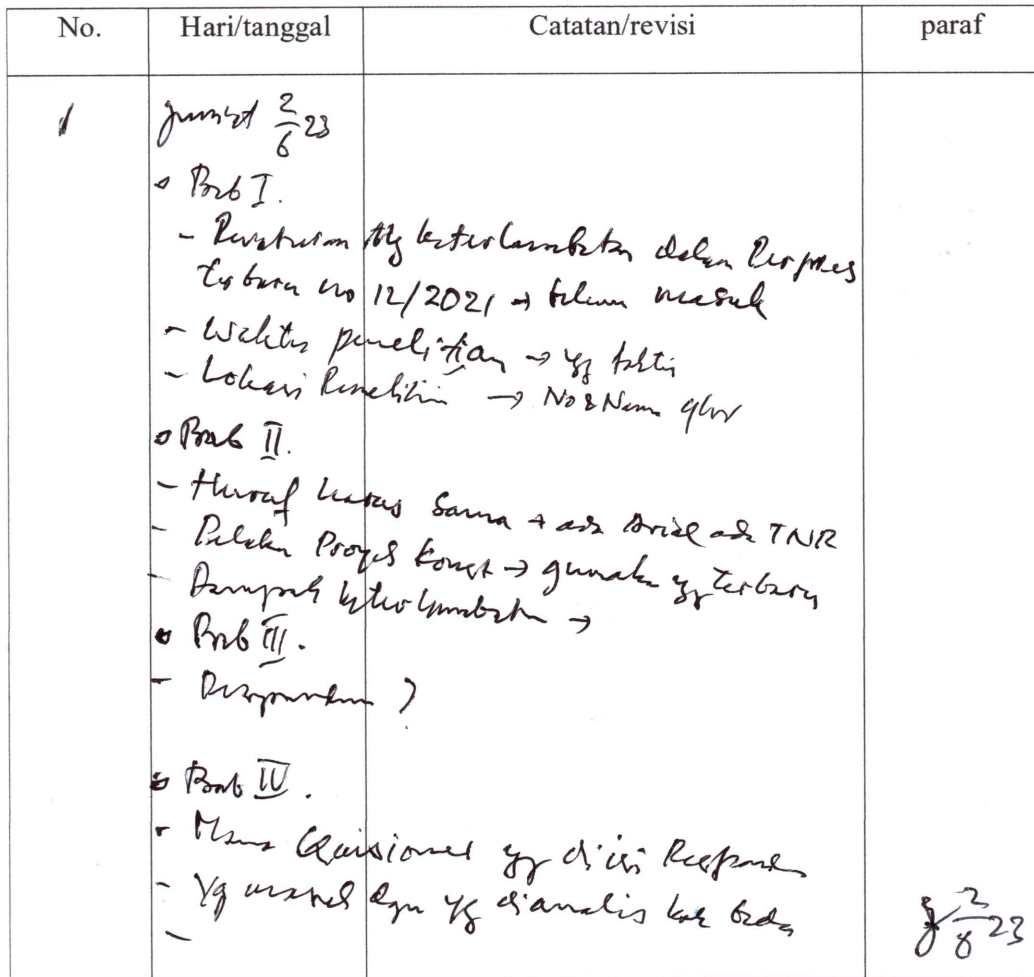 No. Hari/tanggal Catatan/revisi paraf
1 Jum'at 2/6 23
Bab I.
- Peraturan ttg keterlambatan dalam Perpres
terbaru no 12/2021 → belum masuk
- Waktu penelitian → yg
- Lokasi Penelitian → No & Nama gbr
Bab II.
- Huruf harus sama → ada Arial ada TNR
- Pelaku Proyek Konst → gunakan yg terbaru
- Dampak keterlambatan →
Bab III.
- Responden ?
Bab IV.
- Mana Quisioner yg di isi Responden
- Yg masuk dgn yg dianalis kok beda
-
2/8 23